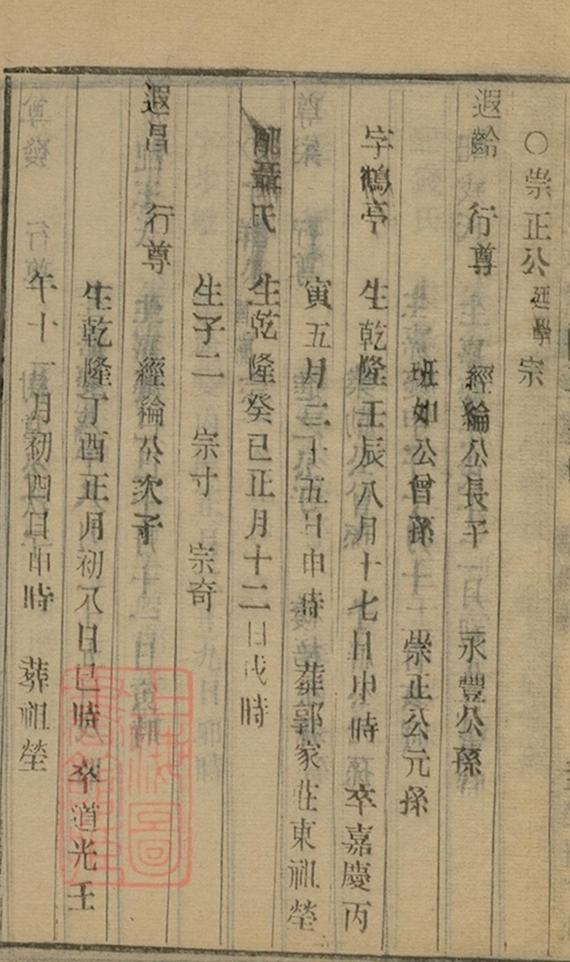 ○崇正公廷學宗
遐齡 行尊 經綸公長子 永豐公孫
班如公曾孫 崇正公元孫
字鶴亭 生乾隆壬辰八月十七日申時 卒嘉慶丙
寅五月二十五日申時 葬郭家庄東祖塋
配聶氏 生乾隆癸巳正月十二日戌時
生子二 宗寸 宗奇
遐昌 行尊 經綸公次子
生乾隆丁酉正月初八日巳時 卒道光壬
午十一月初四日申時 葬祖塋